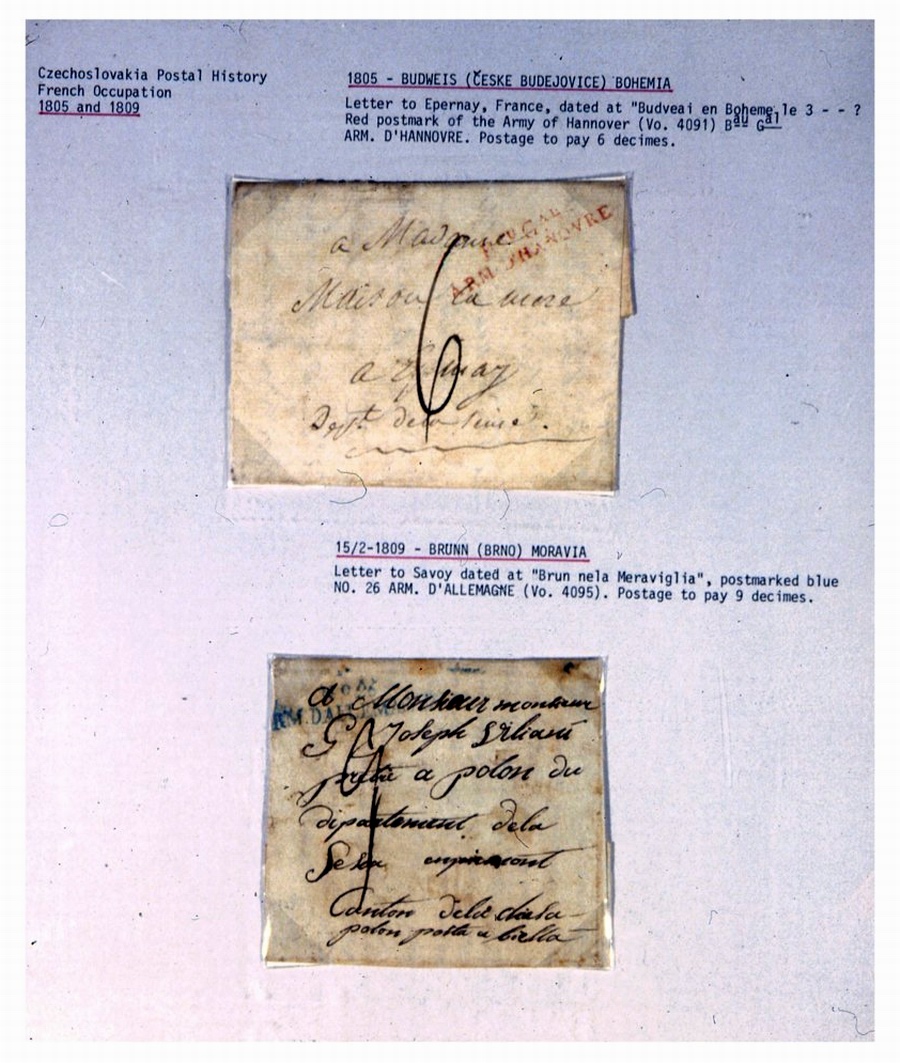 Czechoslovakia Postal History
French Occupation
1805 and 1809
1805 - BUDWEIS (ČESKE BUDEJOVICE) BOHEMIA
Letter to Epernay, France, dated at "Budveai en Boheme, le 3 - - ?
Red postmark of the Army of Hannover (Vo. 4091) Bau Gal
ARM. D'HANNOVRE. Postage to pay 6 decimes.
GAL
ARM. D'HANOVRE
a Madame
Maison la mere
6
a Epernay
Dept. de la
15/2-1809 - BRUNN (BRNO) MORAVIA
Letter to Savoy dated at "Brun nela Meraviglia", postmarked blue
NO. 26 ARM. D'ALLEMAGNE (Vo. 4095). Postage to pay 9 decimes.
A Monsieur monsieur
G Joseph
9
a polon du
dipartement dela
Sesia
Canton dela
polon posta a biella